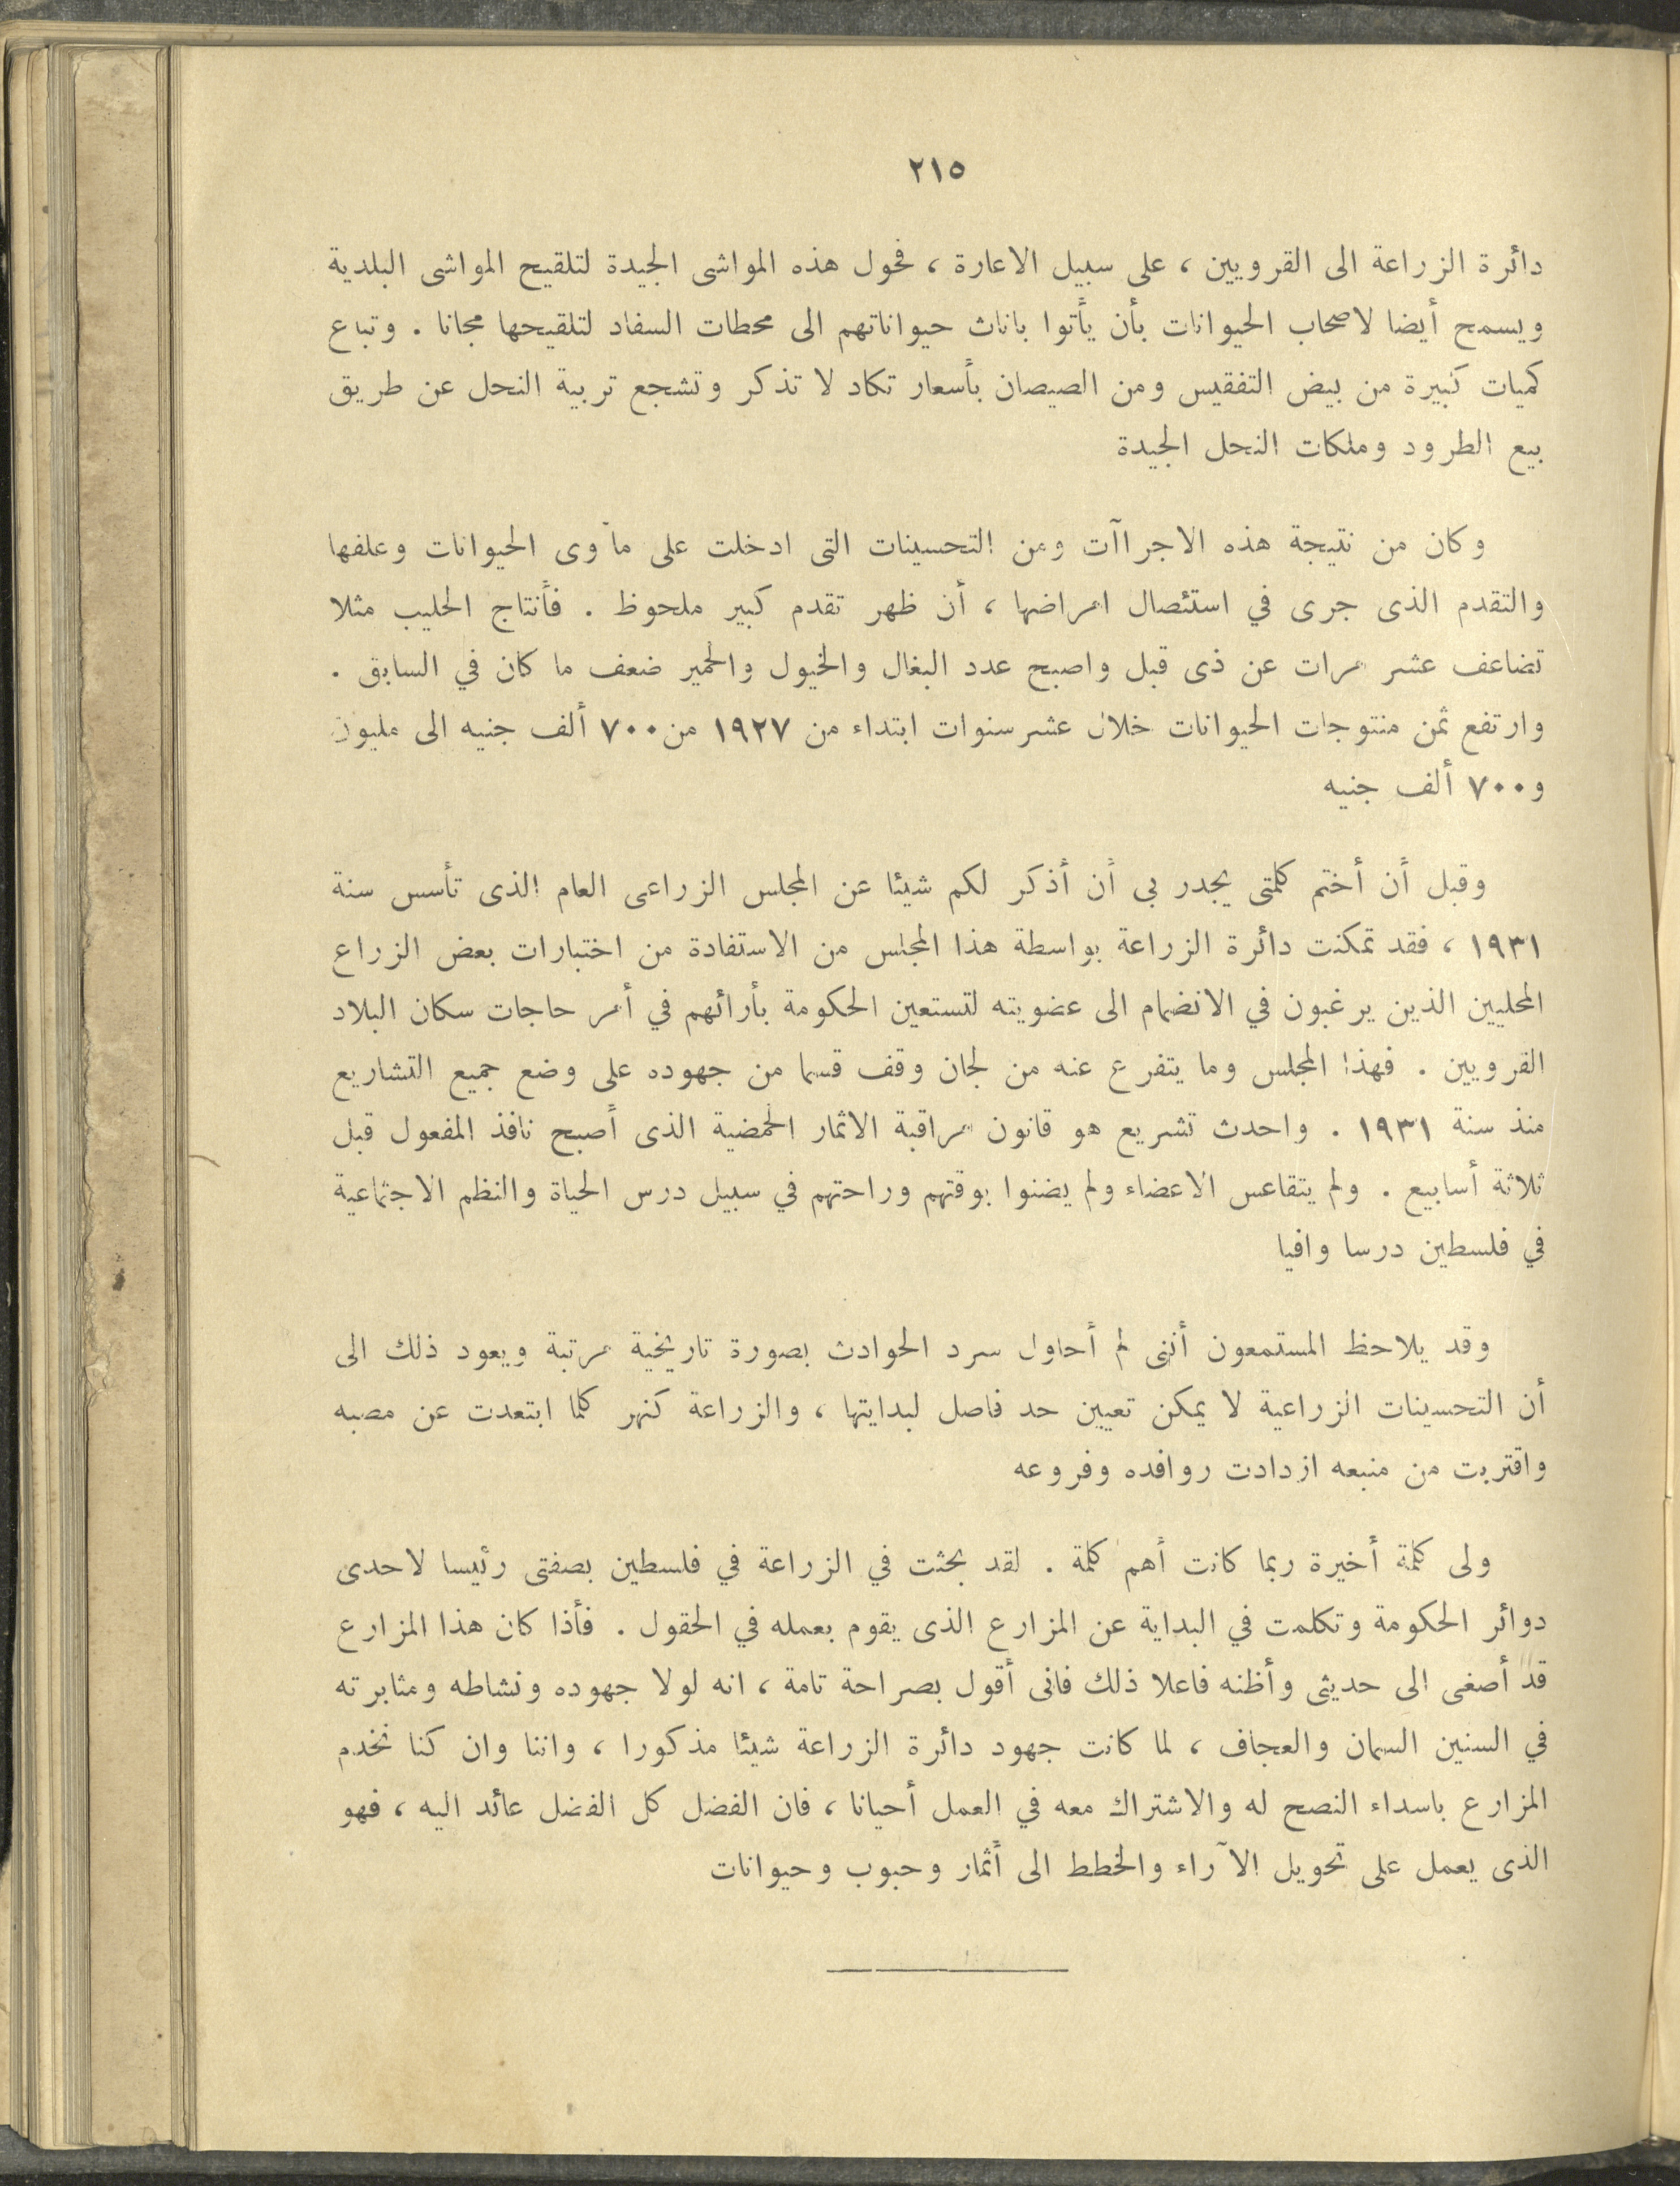 ٢١٥
دائرة الزراعة الى القرويين ، على سبيل الاعارة ، فحول هذه المواشى الجيدة لتلقيح المواشى البلدية
ويسمح أيضا لاصحاب الحيوانات بأن يأتوا باناث حيواناتهم الى محطات السفاد لتلقيحها مجانا . وتباع
كميات كبيرة من بيض التفقيس ومن الصيصان بأسعار تكاد لا تذكر وتشجع تربية النحل عن طريق
بيع الطرود وملكات النحل الجيدة
وكان من نتيجة هذه الاجراآت ومن التحسينات التى ادخلت على مأوى الحيوانات وعلفها
والتقدم الذى جرى في استئصال امراضها ، أن ظهر تقدم كبير ملحوظ . فأنتاج الحليب مثلا
تضاعف عشر مرات عن ذى قبل واصبح عدد البغال والخيول والحمير ضعف ما كان في السابق .
وارتفع ثمن منتوجات الحيوانات خلال عشر سنوات ابتداء من ١٩٢٧ من ٧٠٠ ألف جنيه الى مليون
و٧٠٠ ألف جنيه
وقبل أن أختم كلمتى يجدر بى أن أذكر لكم شيئا عن المجلس الزراعى العام الذى تأسس سنة
١٩٣١ ، فقد تمكنت دائرة الزراعة بواسطة هذا المجلس من الاستفادة من اختبارات بعض الزراع
المحليين الذين يرغبون في الانضمام الى عضويته لتستعين الحكومة بأرائهم في أمر حاجات سكان البلاد
القرويين . فهذا المجلس وما يتفرع عنه من لجان وقف قسما من جهوده على وضع جميع التشاريع
منذ سنة ١٩٣١ . واحدث تشريع هو قانون مراقبة الاثمار الحمضية الذى أصبح نافذ المفعول قبل
ثلاثة أسابيع . ولم يتقاعس الاعضاء ولم يضنوا بوقتهم وراحتهم في سبيل درس الحياة والنظم الاجتماعية
في فلسطين درسا وافيا
وقد يلاحظ المستمعون أننى لم أحاول سرد الحوادث بصورة تاريخية مرتبة ويعود ذلك الى
أن التحسينات الزراعية لا يمكن تعيين حد فاصل لبدايتها ، والزراعة كنهر كلما ابتعدت عن مصبه
واقتربت من منبعه ازدادت روافده وفروعه
ولى كلمة أخيرة ربما كانت أهم كلمة . لقد بحثت في الزراعة في فلسطين بصفتى رئيسا لاحدى
دوائر الحكومة وتكلمت في البداية عن المزارع الذى يقوم بعمله في الحقول . فأذا كان هذا المزارع
قد أصغى الى حديثى وأظنه فاعلا ذلك فانى أقول بصراحة تامة ، انه لولا جهوده ونشاطه ومثابرته
في السنين السمان والعجاف ، لما كانت جهود دائرة الزراعة شيئا مذكورا ، واننا وان كنا نخدم
المزارع باسداء النصح له والاشتراك معه في العمل أحيانا ، فان الفضل كل الفضل عائد اليه ، فهو
الذى يعمل على تحويل الآراء والخطط الى أثمار وحبوب وحيوانات